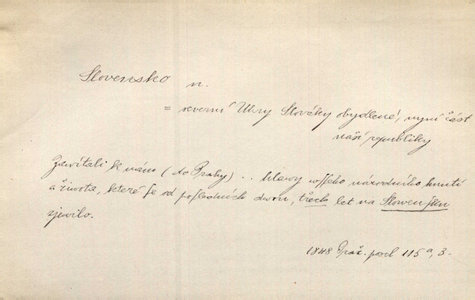 Slovensko n.
= severní Uhry Slováky obydlené, nyní část
naší republiky
Zavítali k nám (do Prahy) .. hlavy wsseho národního hnutí
a života, které se od posledních dwou, třech let na Slowensku
zjevilo.
1848 podl. 115a, 3.